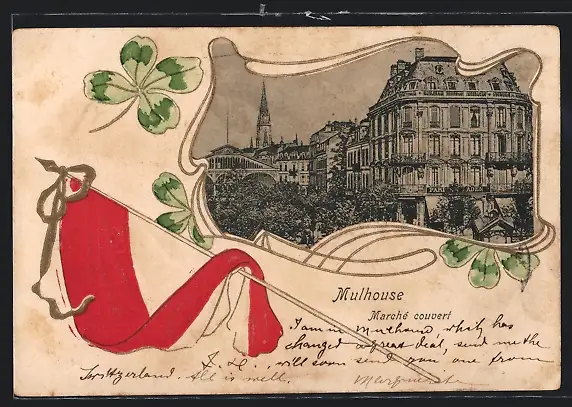 PARI
Mulhouse
Marché couvert
I am in Mulhouse, which has
changed a great deal, send me the
will soon send you one from
Swittzerland. All is well.